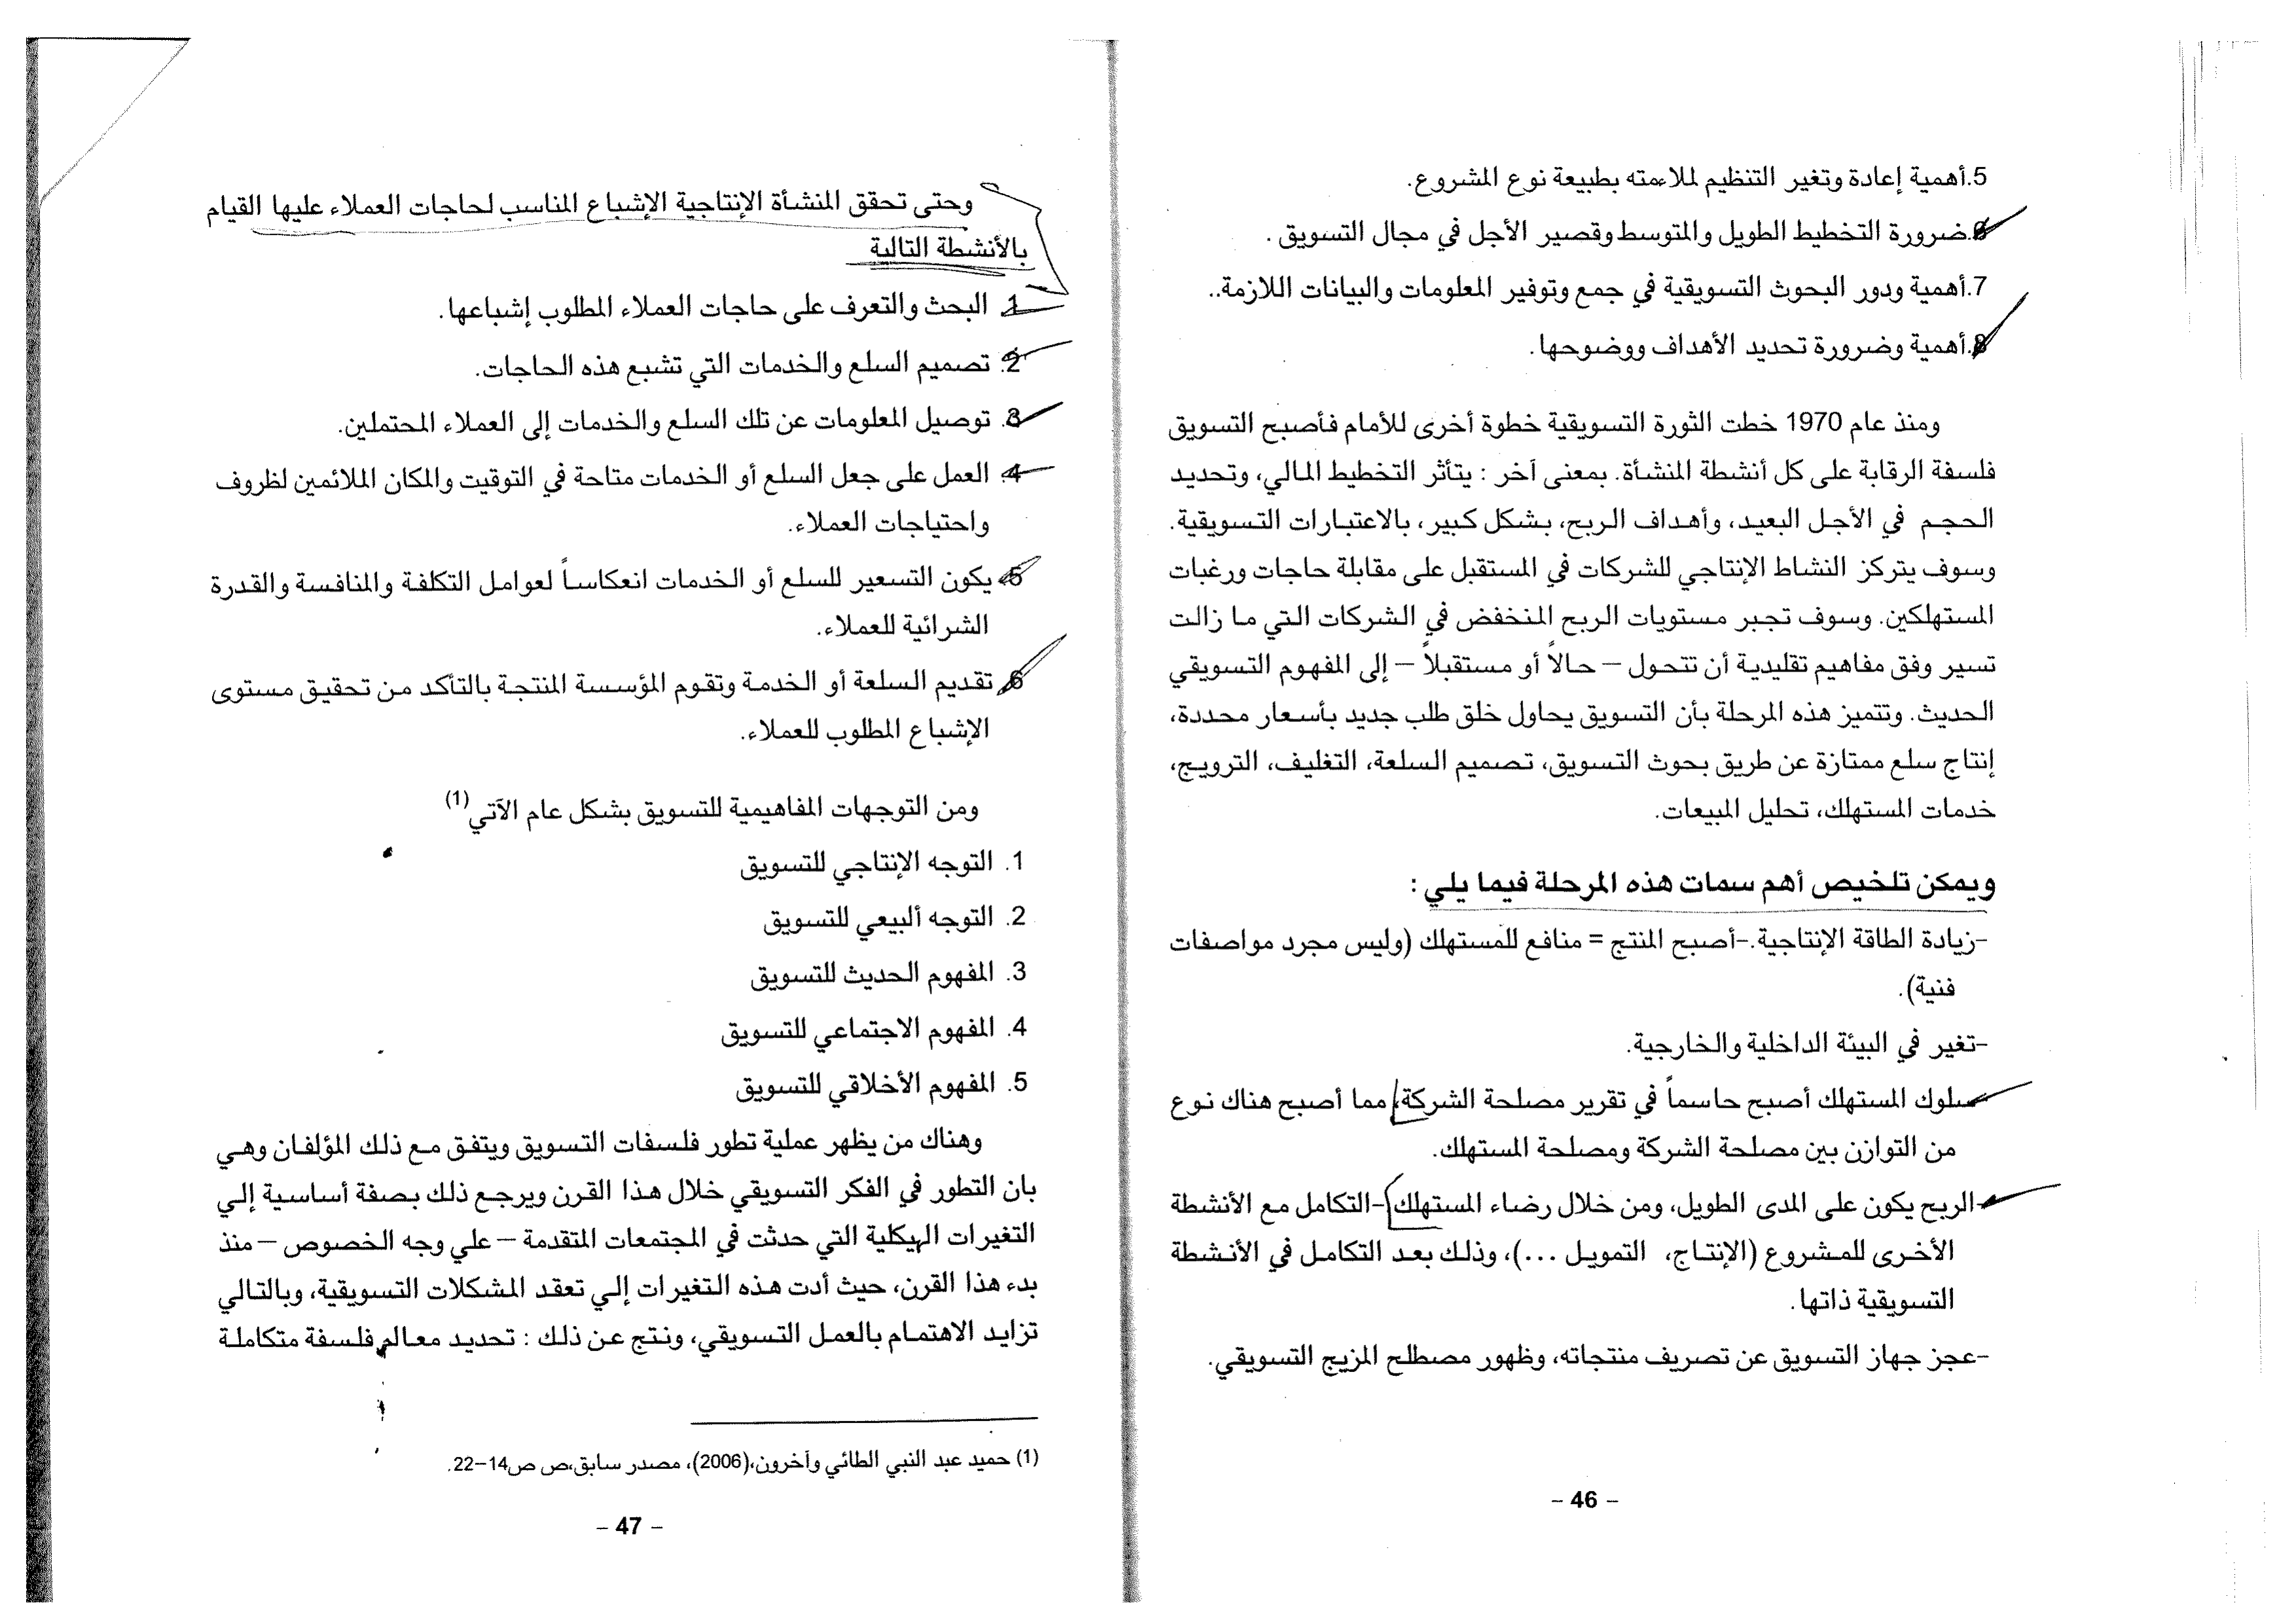 5.أهمية إعادة وتغير التنظيم لملاءمته بطبيعة نوع المشروع.
6.ضرورة التخطيط الطويل والمتوسط وقصير الأجل في مجال التسويق .
7.أهمية ودور البحوث التسويقية في جمع وتوفير المعلومات والبيانات اللازمة..
8.أهمية وضرورة تحديد الأهداف ووضوحها.
ومنذ عام 1970 خطت الثورة التسويقية خطوة أخرى للأمام فأصبح التسويق
فلسفة الرقابة على كل أنشطة المنشأة. بمعنى آخر : يتأثر التخطيط المالي، وتحديد
الحجم في الأجل البعيد، وأهداف الربح، بشكل كبير، بالاعتبارات التسويقية.
وسوف يتركز النشاط الإنتاجي للشركات في المستقبل على مقابلة حاجات ورغبات
المستهلكين. وسوف تجبر مستويات الربح المنخفض في الشركات التي ما زالت
تسير وفق مفاهيم تقليدية أن تتحول – حالاً أو مستقبلاً – إلى المفهوم التسويقي
الحديث. وتتميز هذه المرحلة بأن التسويق يحاول خلق طلب جديد بأسعار محددة،
إنتاج سلع ممتازة عن طريق بحوث التسويق، تصميم السلعة، التغليف، الترويج،
خدمات المستهلك، تحليل المبيعات.
ويمكن تلخيص أهم سمات هذه المرحلة فيما يلي :
-زيادة الطاقة الإنتاجية.-أصبح المنتج = منافع للمستهلك (وليس مجرد مواصفات
فنية).
-تغير في البيئة الداخلية والخارجية.
-سلوك المستهلك أصبح حاسماً في تقرير مصلحة الشركة، مما أصبح هناك نوع
من التوازن بين مصلحة الشركة ومصلحة المستهلك.
-الربح يكون على المدى الطويل، ومن خلال رضاء المستهلك-التكامل مع الأنشطة
الأخرى للمشروع (الإنتاج، التمويل ...)، وذلك بعد التكامل في الأنشطة
التسويقية ذاتها.
-عجز جهاز التسويق عن تصريف منتجاته، وظهور مصطلح المزيج التسويقي.
– 46 –
وحتى تحقق المنشأة الإنتاجية الإشباع المناسب لحاجات العملاء عليها القيام
بالأنشطة التالية
1. البحث والتعرف على حاجات العملاء المطلوب إشباعها.
2. تصميم السلع والخدمات التي تشبع هذه الحاجات.
3. توصيل المعلومات عن تلك السلع والخدمات إلى العملاء المحتملين.
4. العمل على جعل السلع أو الخدمات متاحة في التوقيت والمكان الملائمين لظروف
واحتياجات العملاء.
5. يكون التسعير للسلع أو الخدمات انعكاساً لعوامل التكلفة والمنافسة والقدرة
الشرائية للعملاء.
6. تقديم السلعة أو الخدمة وتقوم المؤسسة المنتجة بالتأكد من تحقيق مستوى
الإشباع المطلوب للعملاء.
ومن التوجهات المفاهيمية للتسويق بشكل عام الآتي(1)
1. التوجه الإنتاجي للتسويق
2. التوجه ألبيعي للتسويق
3. المفهوم الحديث للتسويق
4. المفهوم الاجتماعي للتسويق
5. المفهوم الأخلاقي للتسويق
وهناك من يظهر عملية تطور فلسفات التسويق ويتفق مع ذلك المؤلفان وهي
بان التطور في الفكر التسويقي خلال هذا القرن ويرجع ذلك بصفة أساسية إلي
التغيرات الهيكلية التي حدثت في المجتمعات المتقدمة – علي وجه الخصوص – منذ
بدء هذا القرن، حيث أدت هذه التغيرات إلي تعقد المشكلات التسويقية، وبالتالي
تزايد الاهتمام بالعمل التسويقي، ونتج عن ذلك : تحديد معالم فلسفة متكاملة
(1) حميد عبد النبي الطائي وآخرون،(2006)، مصدر سابق،ص ص14–22.
– 47 –